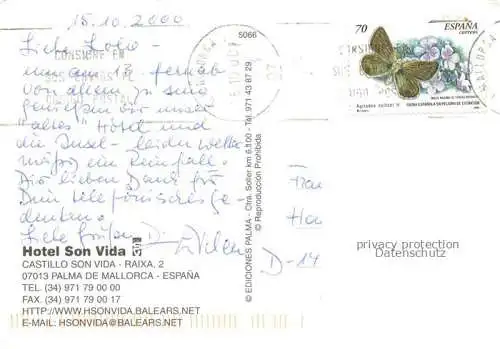 15.10.2000
Liebe
um am 13. fernab
von allem zu sein
genießen wir unser
"altes" Hotel und
die Insel – leider
ein Reinfall.
Dir lieben Dank für
Dein telefonisches Ge-
denken.
Liebe Grüße
Hotel Son Vida
CASTILLO SON VIDA - RAIXA, 2
07013 PALMA DE MALLORCA - ESPAÑA
TEL. (34) 971 79 00 00
FAX. (34) 971 79 00 17
HTTP://WWW.HSONVIDA.BALEARS.NET
E-MAIL: HSONVIDA@BALEARS.NET
5066
© EDICIONES PALMA - Ctra. Soller km 6,100 - Tel. 971 43 87 29
© Reproducción Prohibida
CONSIGNE EN
SUS ENVIOS
70
ESPAÑA
correos
FAUNA ESPAÑOLA EN PELIGRO DE EXTINCION
D-14
privacy protection
Datenschutz